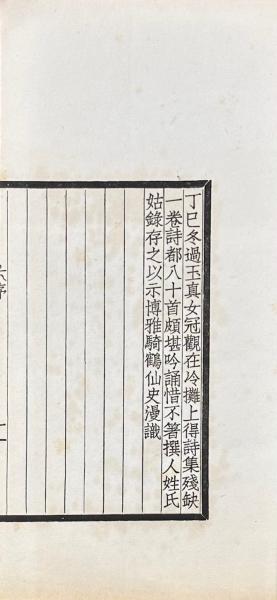 丁巳冬過玉真女冠觀在冷攤上得詩集殘缺
一卷詩都八十首頗堪吟誦惜不箸撰人姓氏
姑錄存之以示博雅騎鶴仙史漫識
序
一